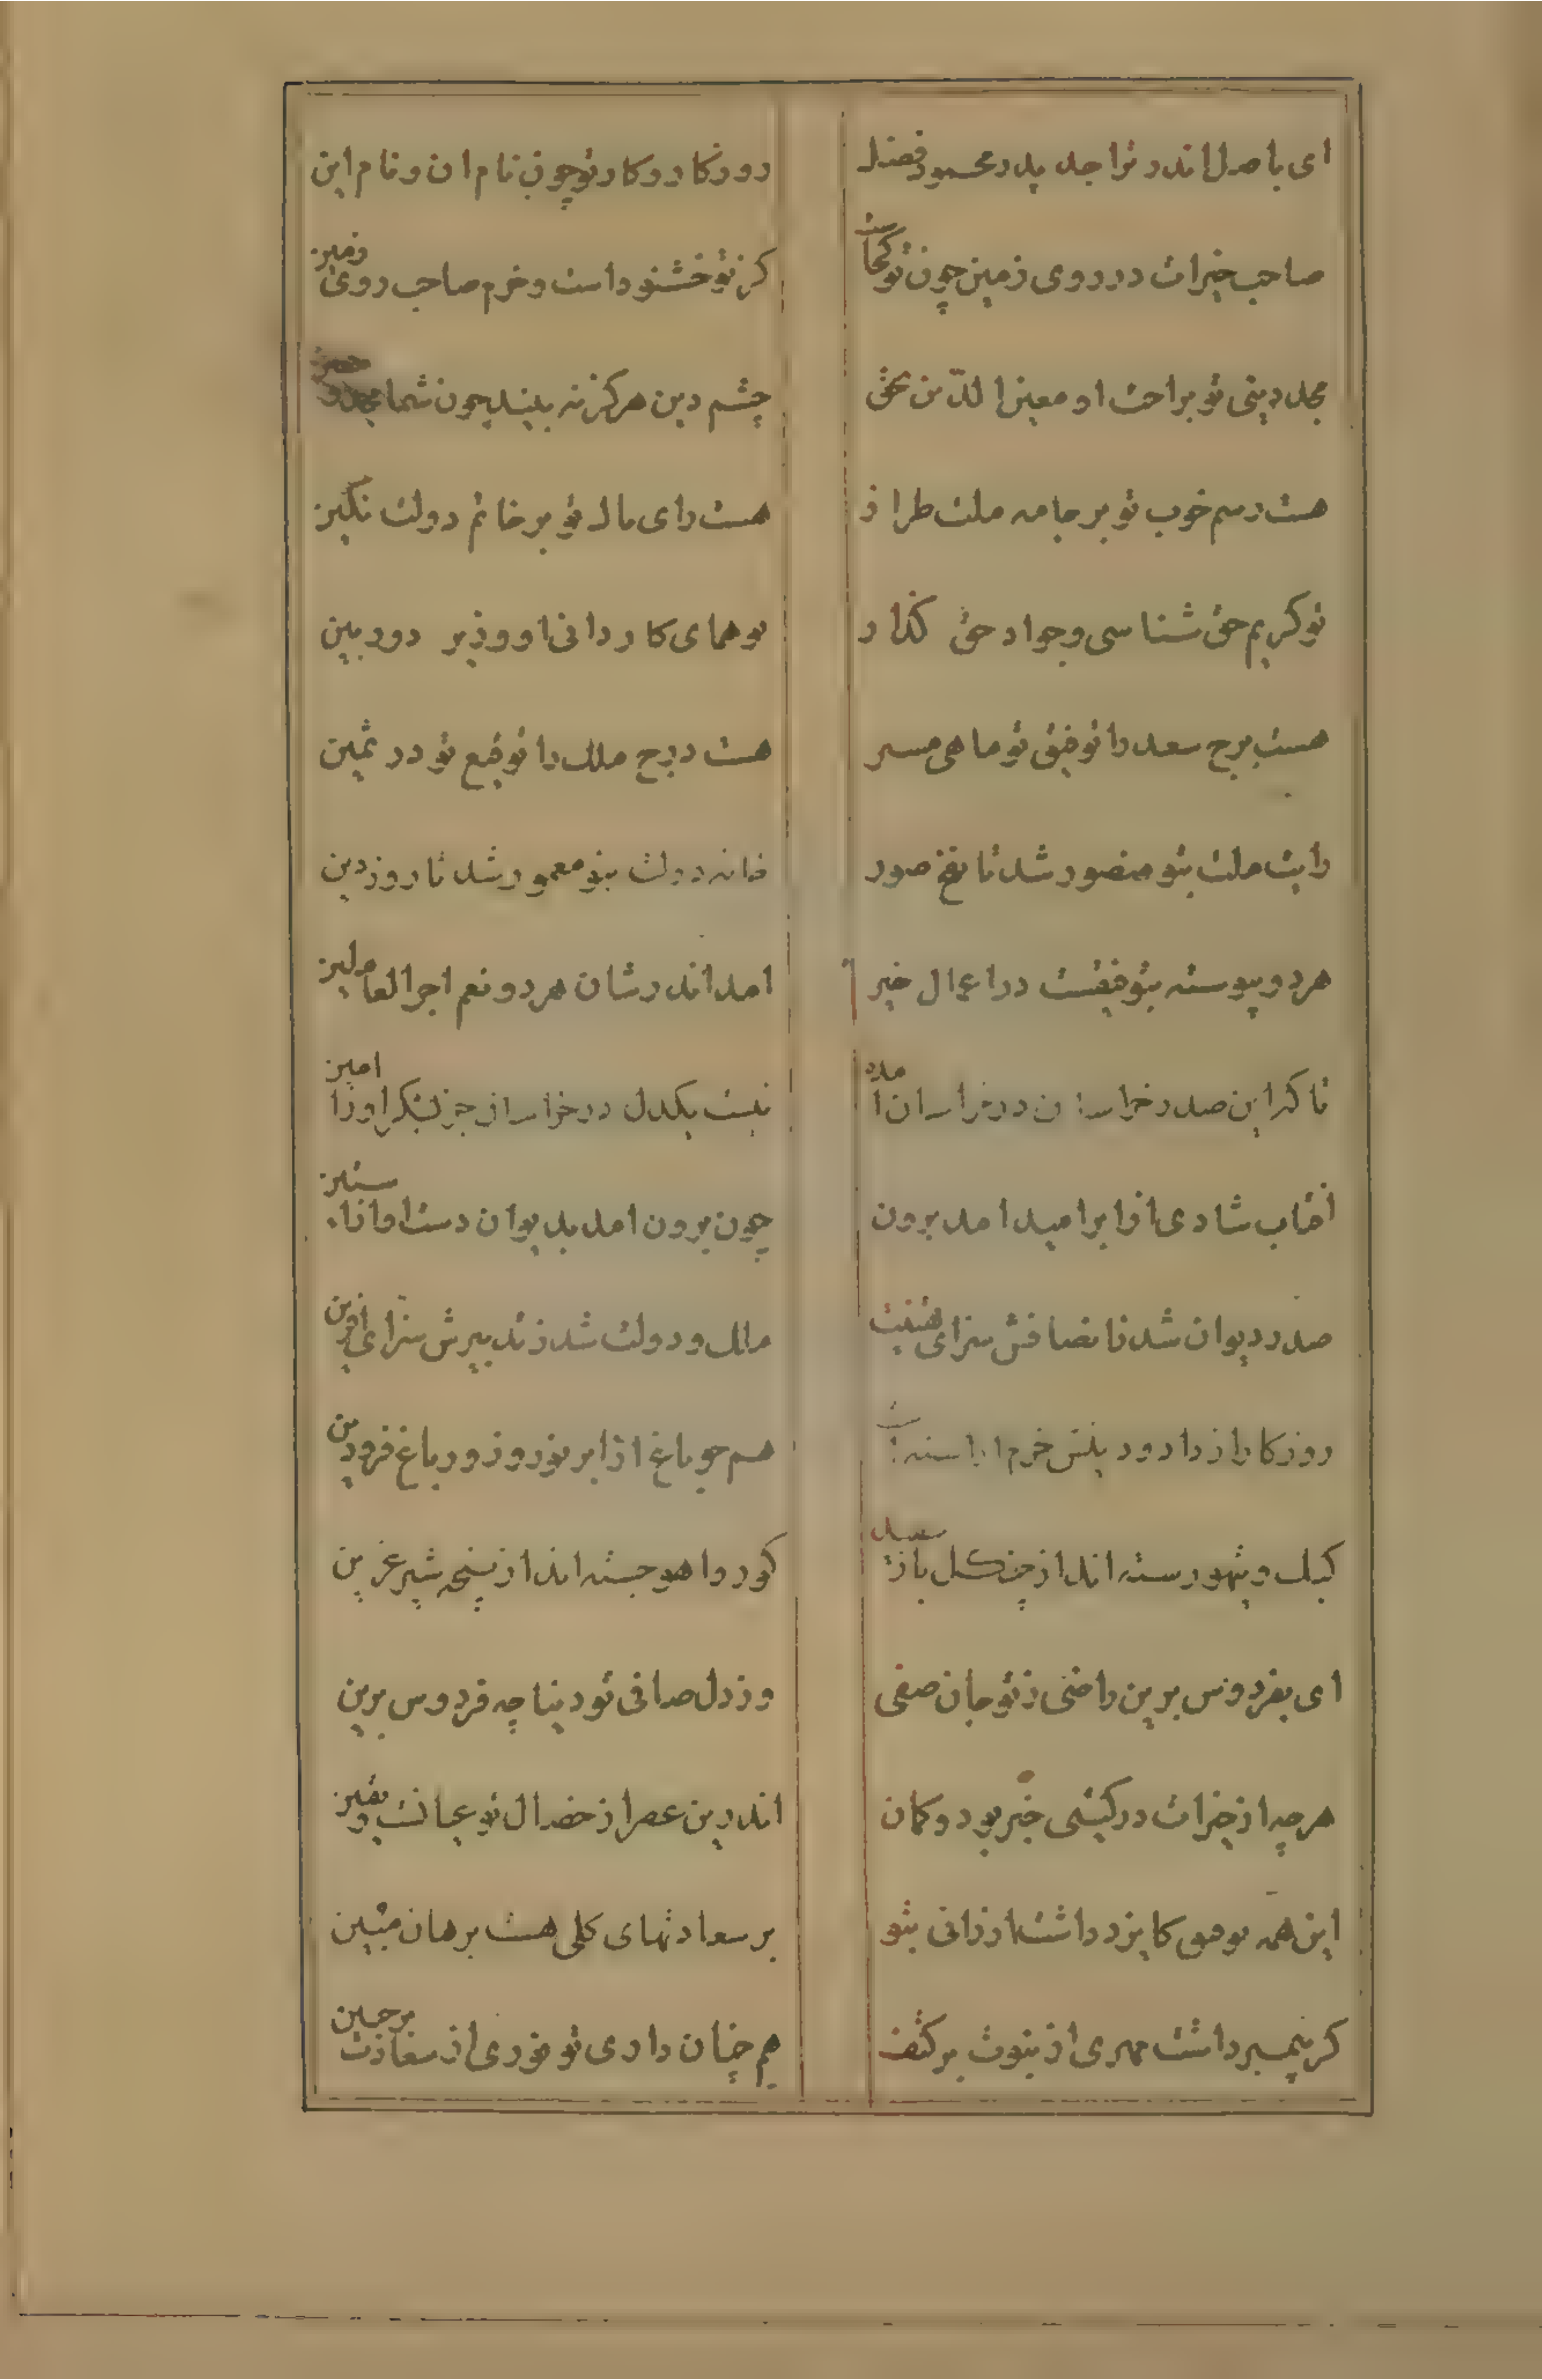 ای باصل اندر ترا جد پدر محمود فضل
روزکار و کار تو چون نام ان و نام این
صاحب خیرات در روی زمین چون تو کجاست
کز تو خشنود است و خرم صاحب روی زمین
مجد دینی تو براحت او معین الدین بحق
چشم دین هرکز نه بیند چون شما مجد و
هست رسم خوب تو بر جامه ملت طراز
هست رای مال تو بر خاتم دولت نکین
تو کریم حق شناسی و جواد حق کذار
تو همای کاردانی او وزیر دوربین
هست برج سعد را توفیق تو ماهی مسیر
هست درج ملک را توقیع تو در ثمین
رایت ملت بتو منصور شد تا نفخ صور
خانه دولت بتو معمور شد تا روز دین
هر دو پیوسته بتوفیقست در اعمال خیر
امد اندر شان هر دو نعم اجر العاملین
تا که این صدر خراسان در خراسان امد
نیست یکدل در خراسان جز بشکر او
افتاب شادی از ابر امید امد برون
چون برون امد بدیوان دست او از استین
صدر دیوان شد ز انصافش سزای تهنیت
ملک و دولت شد ز تدبیرش سزای افرین
روزکار از داد و دینش خرم اراسته است
هم چو باغ از ابر نوروز و ر باغ فرودین
کبک و تیهو رسته اند از چنکل باز
کور و اهو جسته اند از پنجه شیر عرین
ای بفردوس برین راضی ز تو جان صفی
وز دل صافی تو دنیا چه فردوس برین
هر چه از خیرات در کیتی خبر بود و کمان
اندرین عصر از خصال تو عیانست و یقین
این همه توفیق کایزد داشت ارزانی بتو
بر سعادتهای کلی هست برهان مبین
کر پیمبر داشت مهری از نبوت بر کتف
هم چنان داری تو نوری از سعادت بر جبین